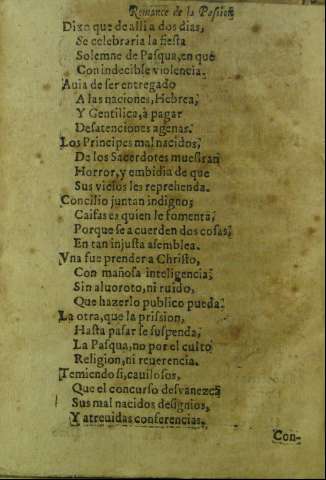 Romance de la Passion
Dixo que de alli a dos dias,
Se celebraria la fiesta
Solemne de Pasqua, en que
Con indecible violencia.
Auia de ser entregado
A las naciones, Hebrea,
Y Gentilica, à pagar
Desatenciones agenas.
Los Principes mal nacidos,
De los Sacerdotes muestran
Horror, y embidia de que
Sus vicios les reprehenda.
Concilio juntan indigno;
Caifas es quien le fomenta,
Porque se acuerden dos cosas,
En tan injusta asemblea.
Vna fue prender a Christo,
Con mañosa inteligencia;
Sin aluoroto, ni ruido,
Que hazerlo publico pueda.
La otra, que la prission,
Hasta pasar se suspenda,
La Pasqua, no por el culto
Religion, ni reuerencia.
Temiendo si, cauilosos,
Que el concurso desvanezca
Sus mal nacidos designios,
Y atreuidas conferencias.
Con-